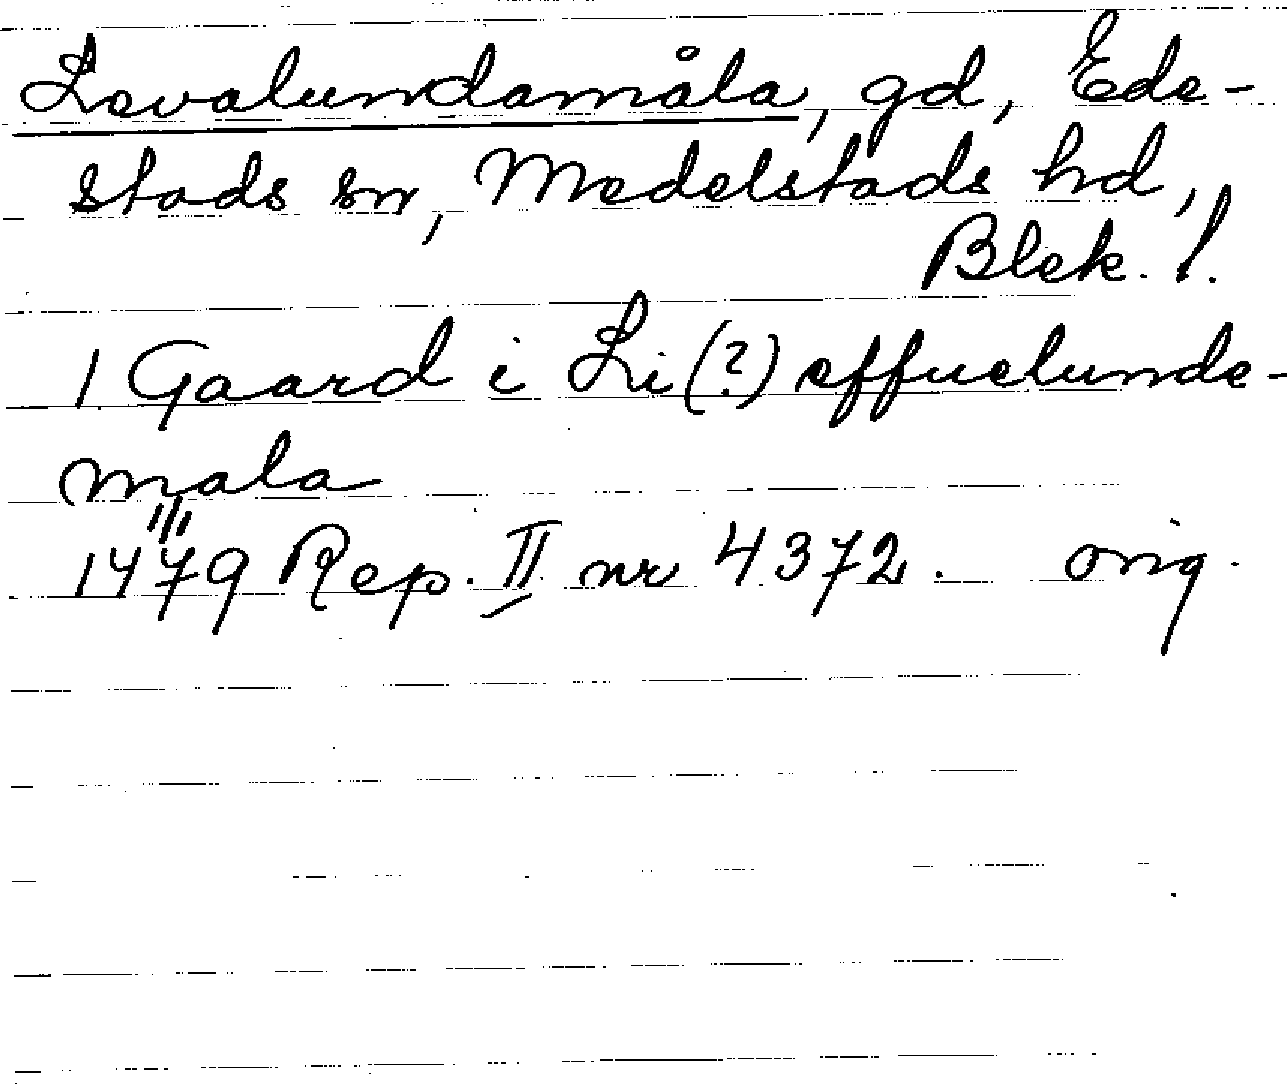 Levalundamåla, gd, Ede-
stads sn, Medelstads hd,
Blek. l.
1 Gaard i Li(?)effuelunde-
mala
1479 Rep. II nr 4372. orig.